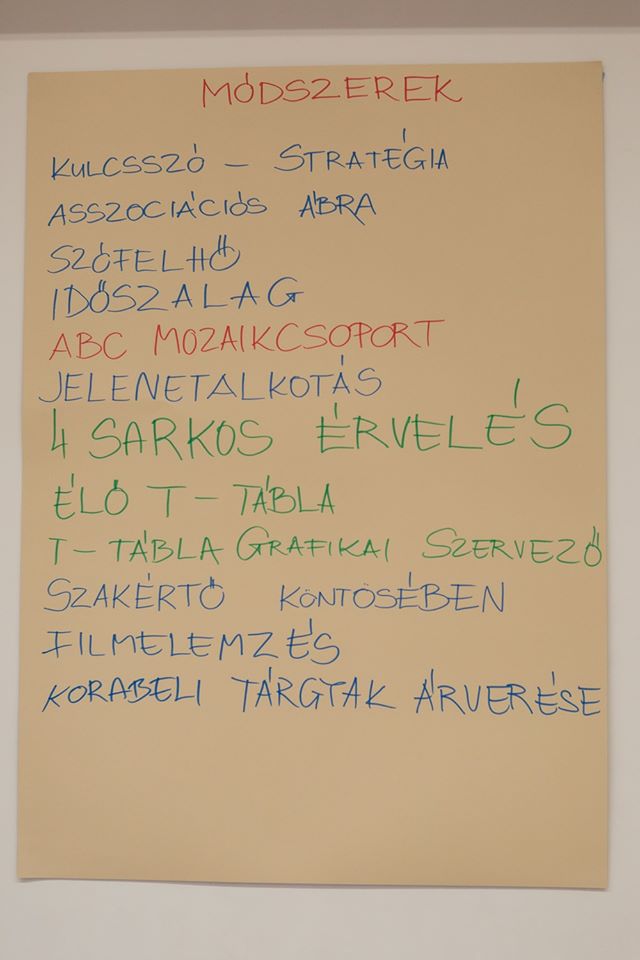 MÓDSZEREK
KULCSSZÓ – STRATÉGIA
ASSZOCIÁCIÓS ÁBRA
SZÓFELHŐ
IDŐSZALAG
ABC MOZAIKCSOPORT
JELENETALKOTÁS
4 SARKOS ÉRVELÉS
ÉLŐ T – TÁBLA
T – TÁBLA GRAFIKAI SZERVEZŐ
SZAKÉRTŐ KÖNTÖSÉBEN
FILMELEMZÉS
KORABELI TÁRGYAK ÁRVERÉSE